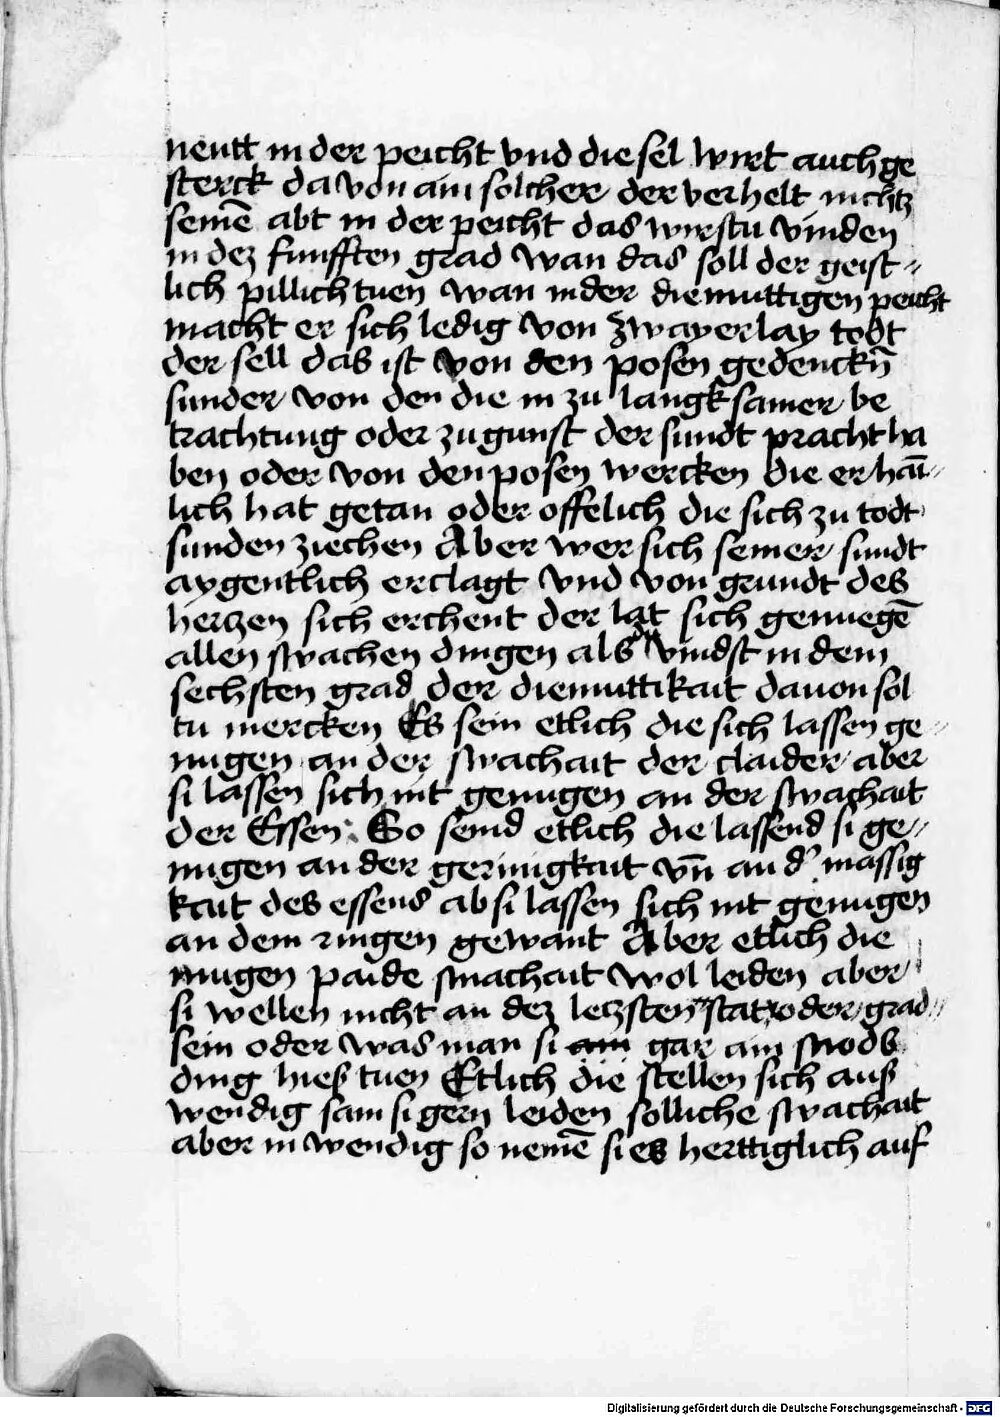 neutt in der peicht vnd die sel wirt auch ge
sterck da von ain solcher der verhelt nichtz
seinē abt in der peicht das wirstu vinden
in dez funfften grad wan das soll der geist⸗
lich pillich tuen wan in der diemuttigen peicht
macht er sich ledig von zwayerlay todt
der sell das ist von den posen gedenckn̄
sunder von den die in zu langksamer be
trachtung oder zu gunst der sundt pracht ha
ben oder von den posen wercken die er haū⸗
lich hat getan oder offelich die sich zu todt
sunden ziechen Aber wer sich seiner sundt
aygentlich erclagt vnd von grundt des
hertzen sich erchent der lat sich genuegē
allen swachen dingen als du vindst in dem
sechsten grad der diemuttikait dauon sol
tu mercken Es sein etlich die sich lassen ge⸗
nugen an der swachait der claider aber
si lassen sich nit genugen an der swachait
der Essen So seind etlich die lassend si ge⸗
nugen an der geringkait vn̄ an dʼ massig
kait des essens ab si lassen sich nit genugen
an dem ringen gewant Aber etlich die
mugen paide swachait wol leiden aber
si wellen nicht an dez letzsten stat oder grad⸗
sein oder was man si ain gar ain snodß
ding hieß tuen Etlich die stellen sich auß
wendig sam si gern leiden solliche swachait
aber in wendig so nemē si es herttiglich auf
Digitalisierung gefördert durch die Deutsche Forschungsgemeinschaft - DFG